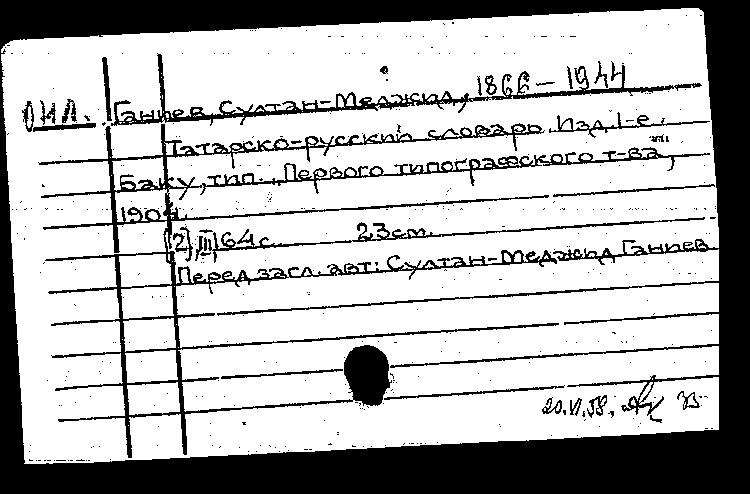 ОНЛ. Ганиев, Султан-Меджид, 1866 – 1944
Татарско-русский словарь. Изд. 1-е.
Баку, тип. "Первого типографского т-ва",
1904.
[2], III, 64 с. 23 см.
Перед загл. авт: Султан-Меджид Ганиев
20.VI.59.